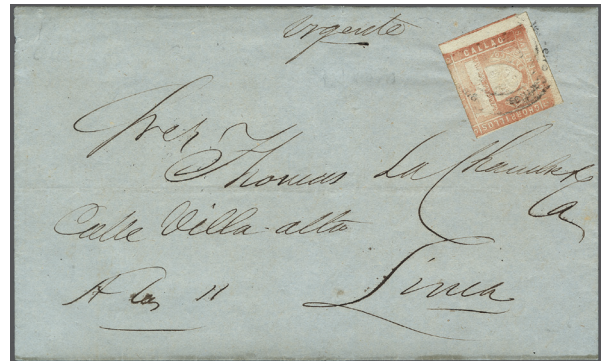 Urgente
CALLAO
CHORRILLOS
Sres
Thomas La Chambre
Calle Villa-alta
A las 11
Lima